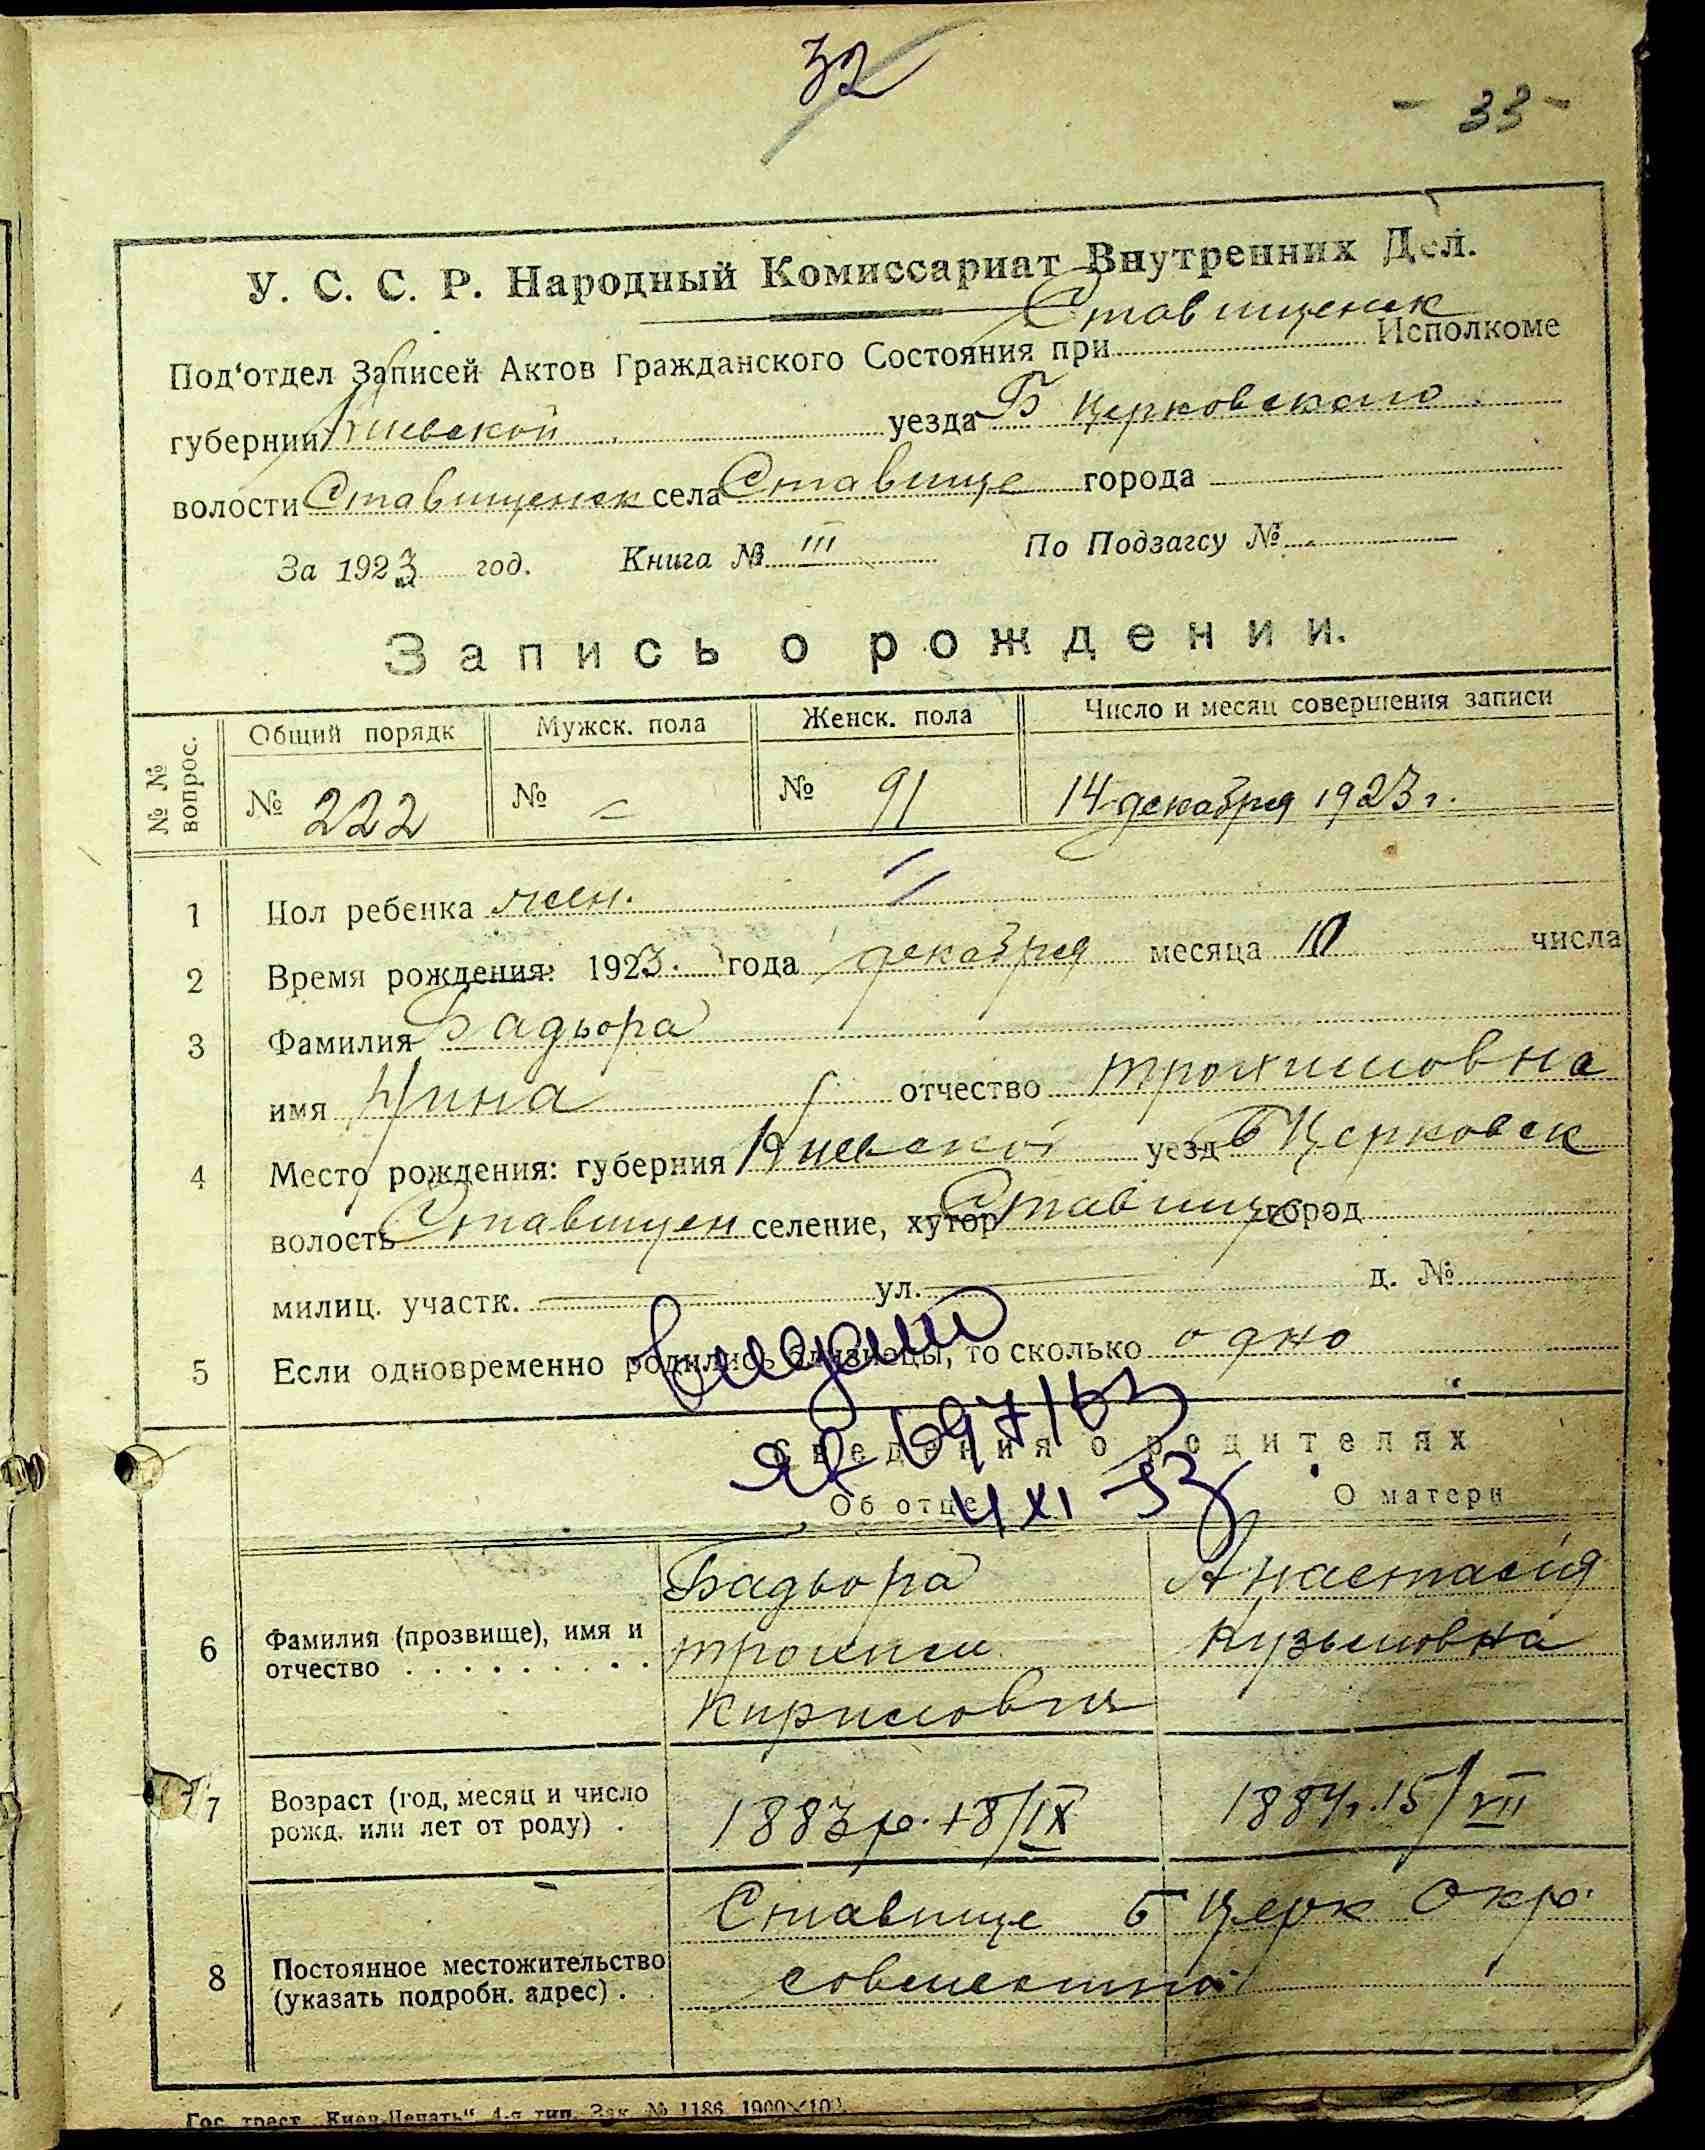 32
- 33 -
У. С. С. Р. Народный Комиссариат Внутренних Дел.
Под‘отдел Записей Актов Гражданского Состояния при Ставищенск Исполкоме
губернии Киевской уезда Б Церковского
волости Ставищенск села Ставище города
За 1923 год. Книга № III По Подзагсу №
Запись о рождении.
№ № вопрос. Общий порядк Мужск. пола Женск. пола Число и месяц совершения записи
№ 222 № – № 91 14 декабря 1923 г.
1 Пол ребенка жен.
2 Время рождения: 1923. года декабря месяца 10 числа
3 Фамилия Бадьора
имя Нина отчество Трохимовна
4 Место рождения: губерния Киевской уезд Б Церковск
волость Ставищен селение, хутор Ставище город
милиц. участк. ул. д. №
5 Если одновременно родились близнецы, то сколько одно
697163
4 XI 53
Сведения о родителях
Об отце О матери
6 Фамилия (прозвище), имя и отчество
Бадьора Анастасія
Трохим Кузьмовна
Кирилович
7 Возраст (год, месяц и число рожд. или лет от роду) 1883 р. 18/IX 1884 г. 15/VII
8 Постоянное местожительство (указать подробн. адрес)
Ставище Б Церк Окр.
совместно
Гос. трест „Киев-Печать“ 4-я тип. Зак. № 1186